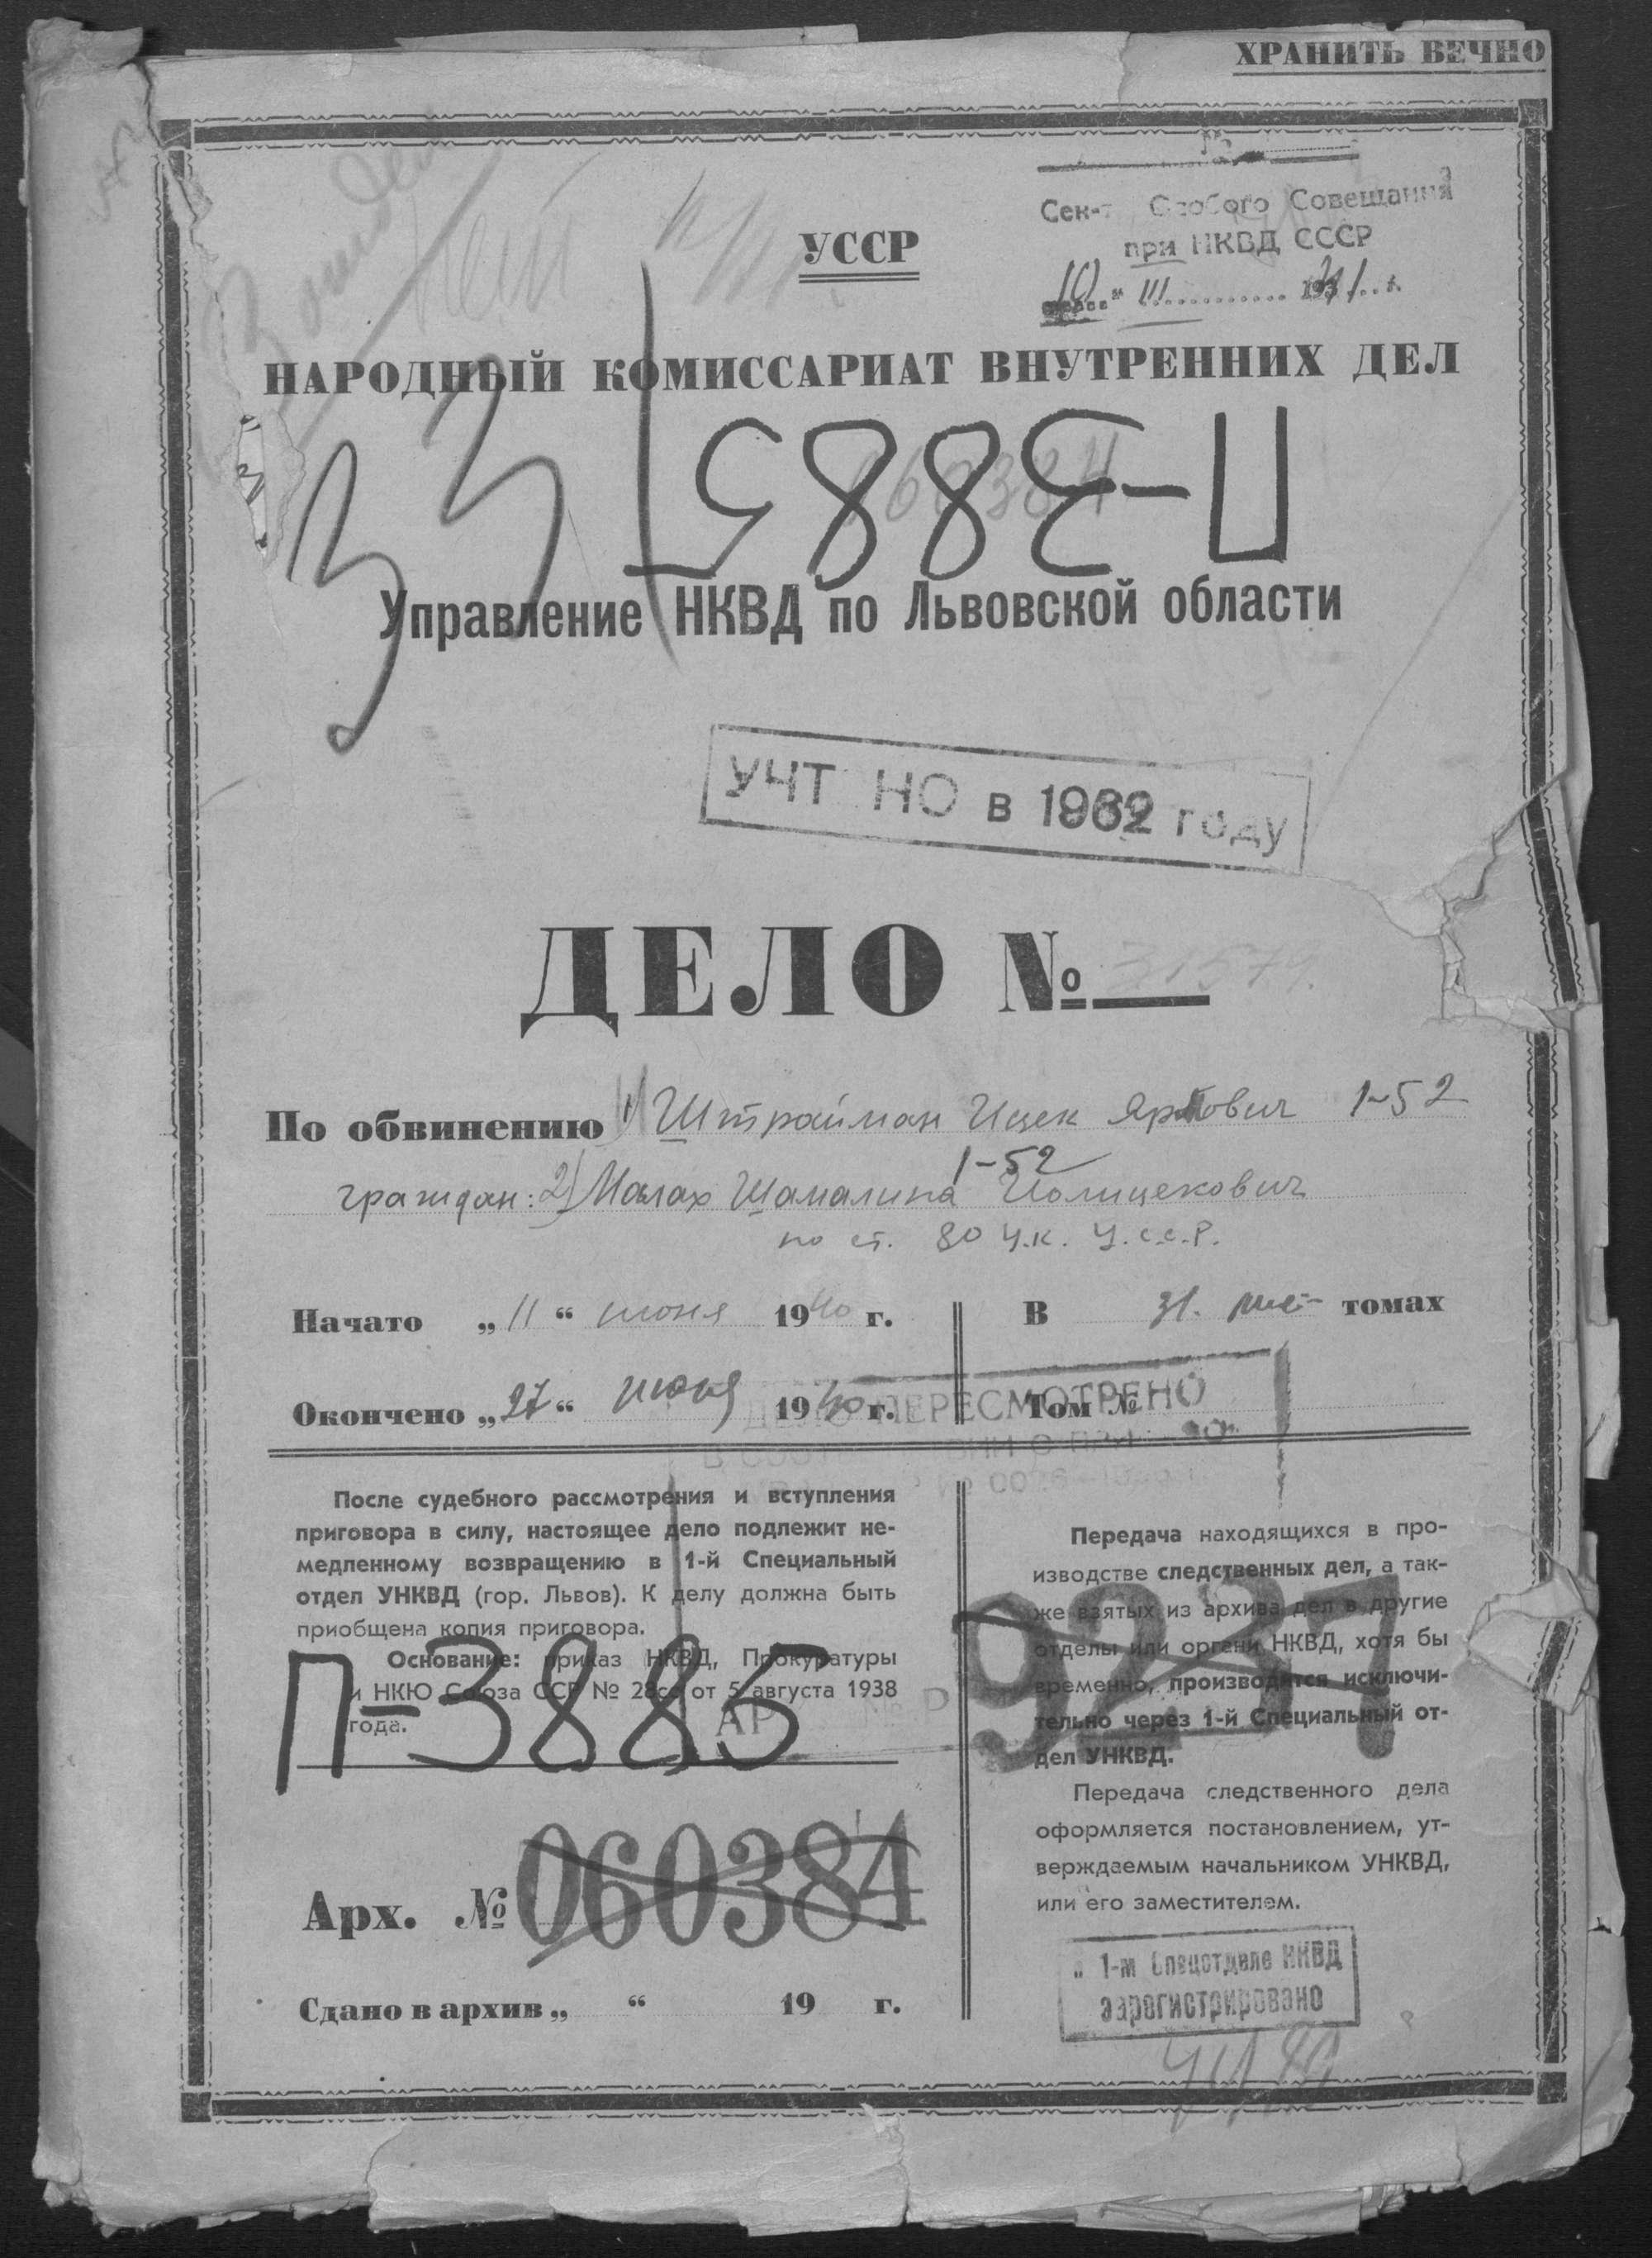 ХРАНИТЬ ВЕЧНО
Особого Совещания
при НКВД СССР
10 " III 1941 г.
УССР
НАРОДНЫЙ КОМИССАРИАТ ВНУТРЕННИХ ДЕЛ
П-3885
Управление НКВД по Львовской области
УЧТ НО в 1962 году
ДЕЛО №
По обвинению 1) Штрайман Ицек 1-52
1-52
граждан: 2) Малах
по ст. 80 У.К. У.С.С.Р.
Начато „11“ июня 1940 г.
В 31. томах
Окончено „27“ июня 1940 г.
Том №
ДЕЛО ПЕРЕСМОТРЕНО
После судебного рассмотрения и вступления
приговора в силу, настоящее дело подлежит не-
медленному возвращению в 1-й Специальный
отдел УНКВД (гор. Львов). К делу должна быть
приобщена копия приговора.
Основание: приказ НКВД, Прокуратуры
и НКЮ Союза ССР № 28сс от 5 августа 1938
года.
П-3885
Арх. № 060384
Сдано в архив „ “ 19 г.
Передача находящихся в про-
изводстве следственных дел, а так-
же взятых из архива дел в другие
отделы или органы НКВД, хотя бы
временно, производится исключи-
тельно через 1-й Специальный от-
дел УНКВД.
9237
Передача следственного дела
оформляется постановлением, ут-
верждаемым начальником УНКВД,
или его заместителем.
1-м Спецотделе НКВД
зарегистрировано